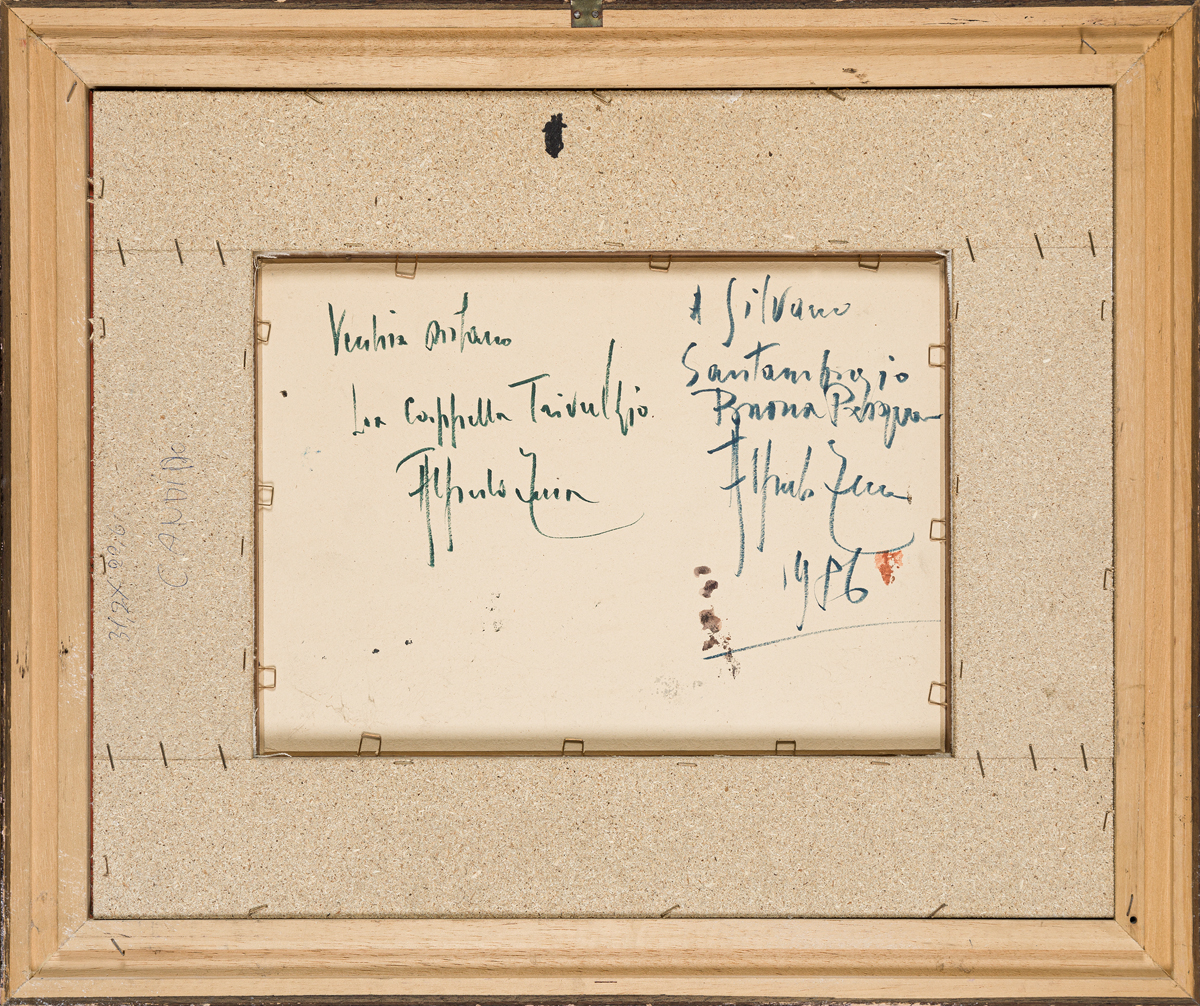 Vecchia Milano
La Cappella Trivulzio.
Alfredo Zecca
A Silvano
Santambrogio
Buona Pasqua
Alfredo Zecca
1986
CANDIDO